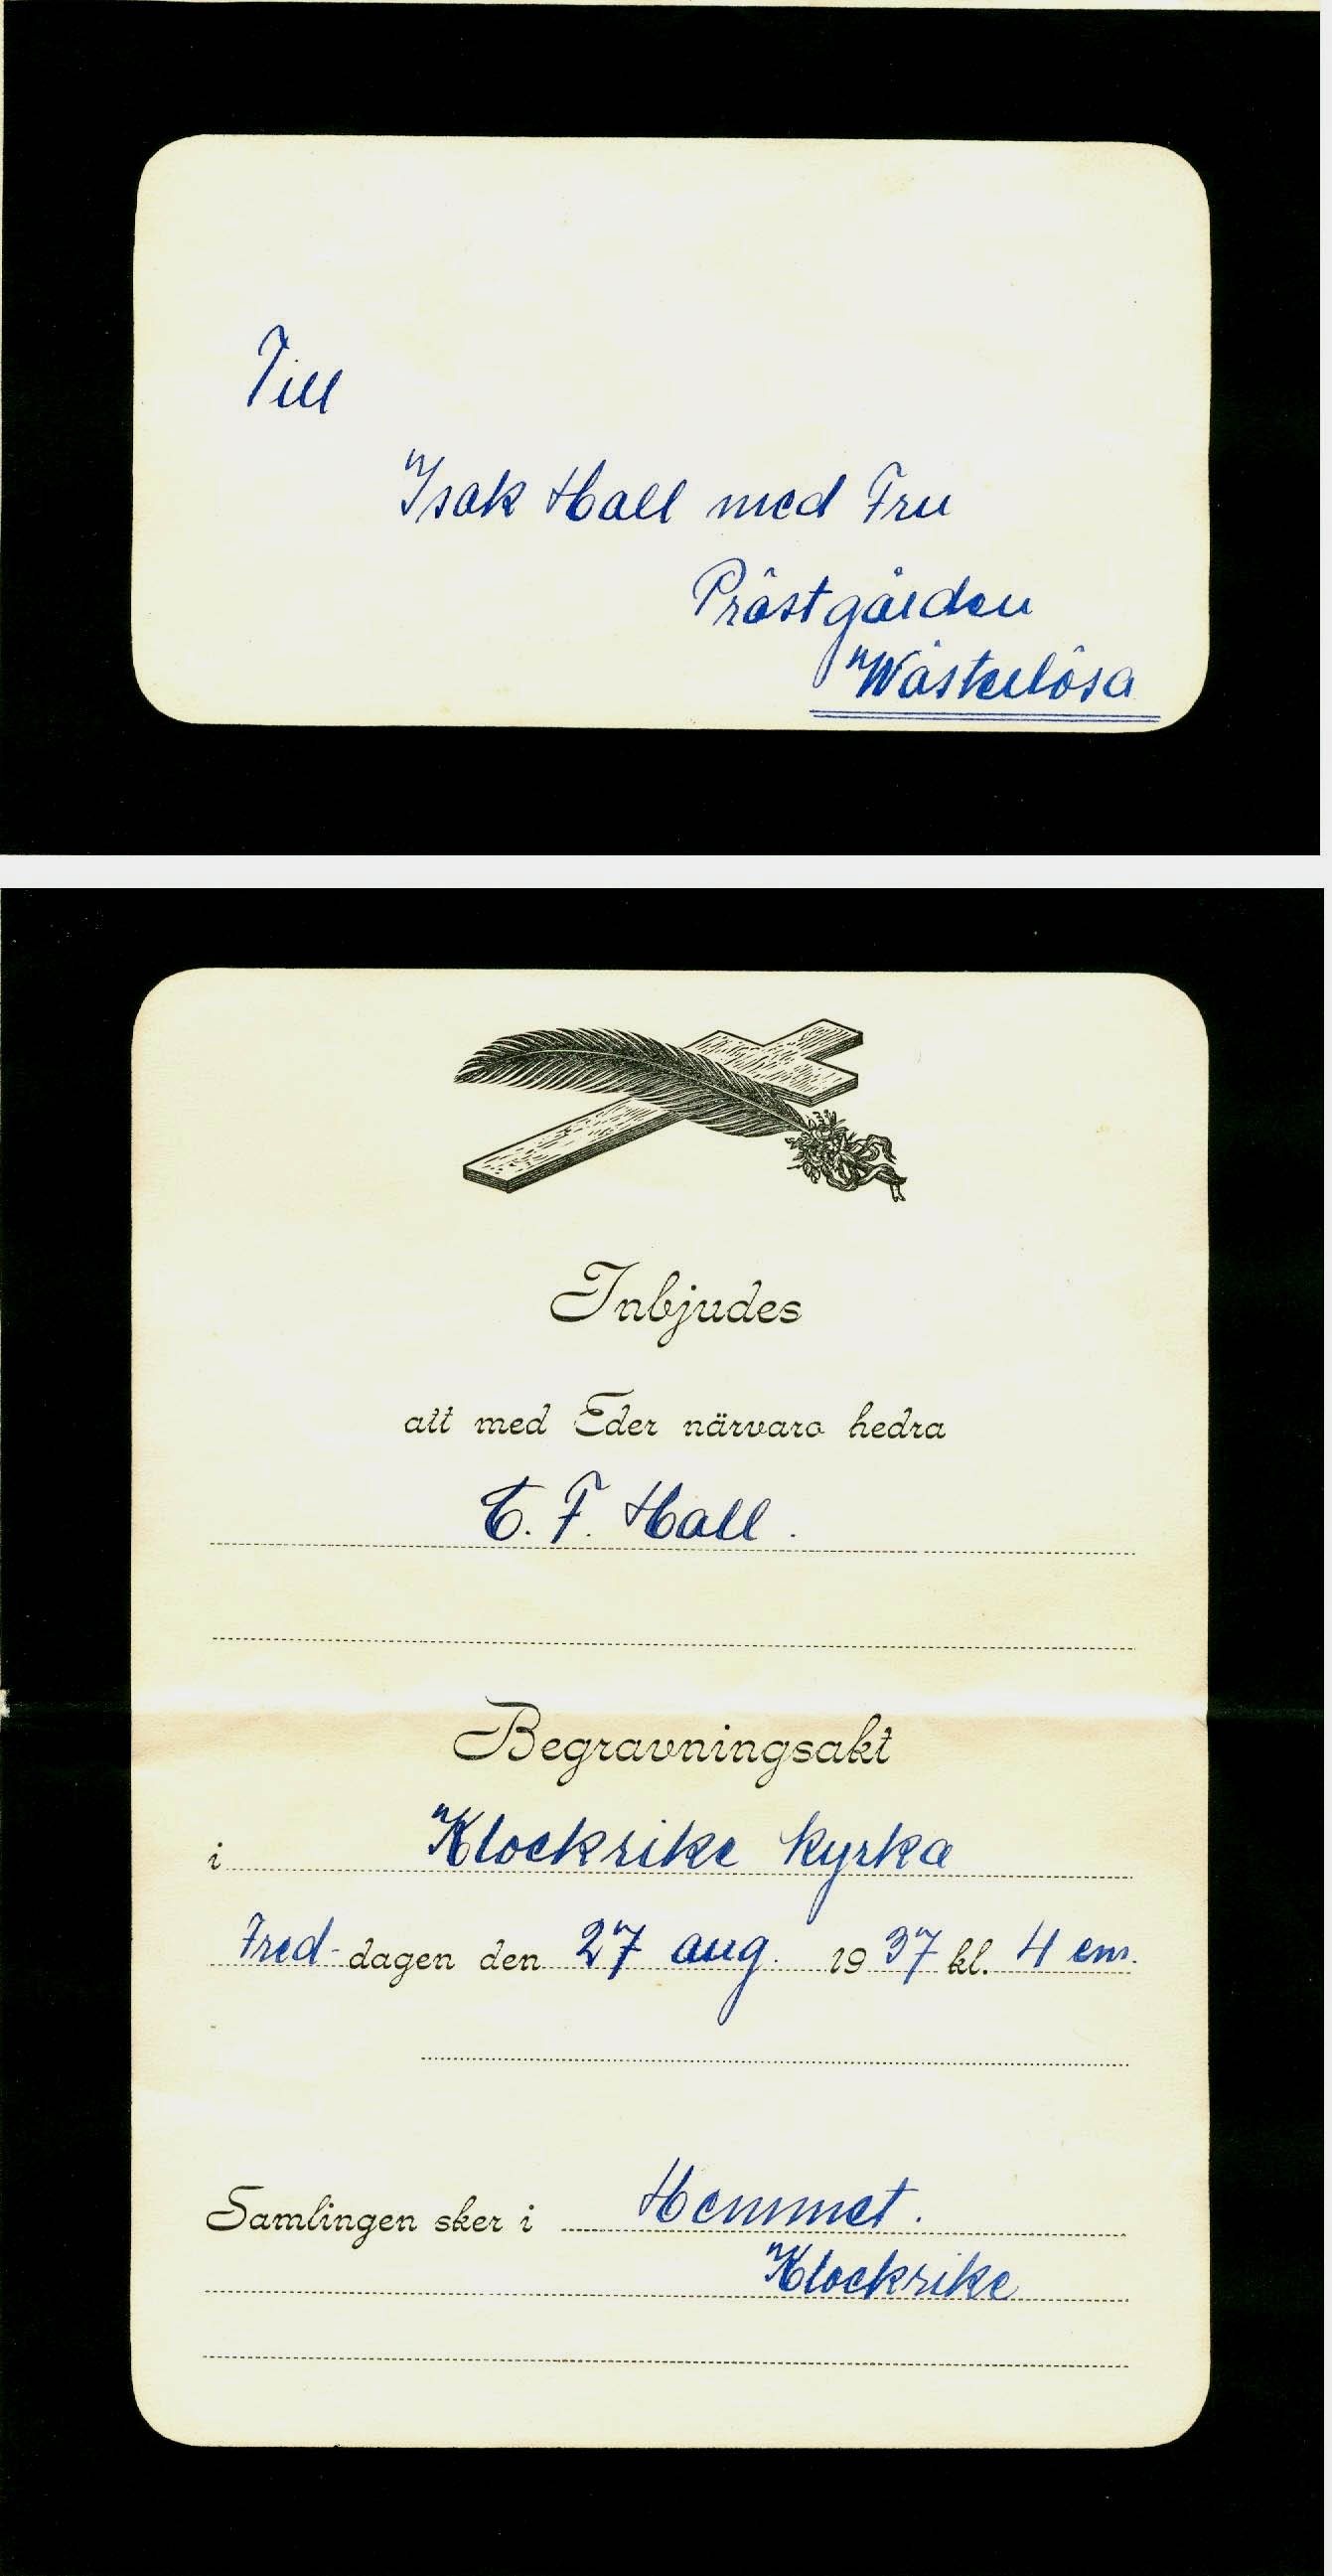 Till
Isak Hall med Fru
Prästgården
Wästerlösa
Inbjudes
att med Eder närvaro hedra
C. F. Hall.
Begravningsakt
i Klockrike kyrka
Fred-dagen den 27 aug. 1937 kl. 4 em.
Samlingen sker i Hemmet.
Klockrike